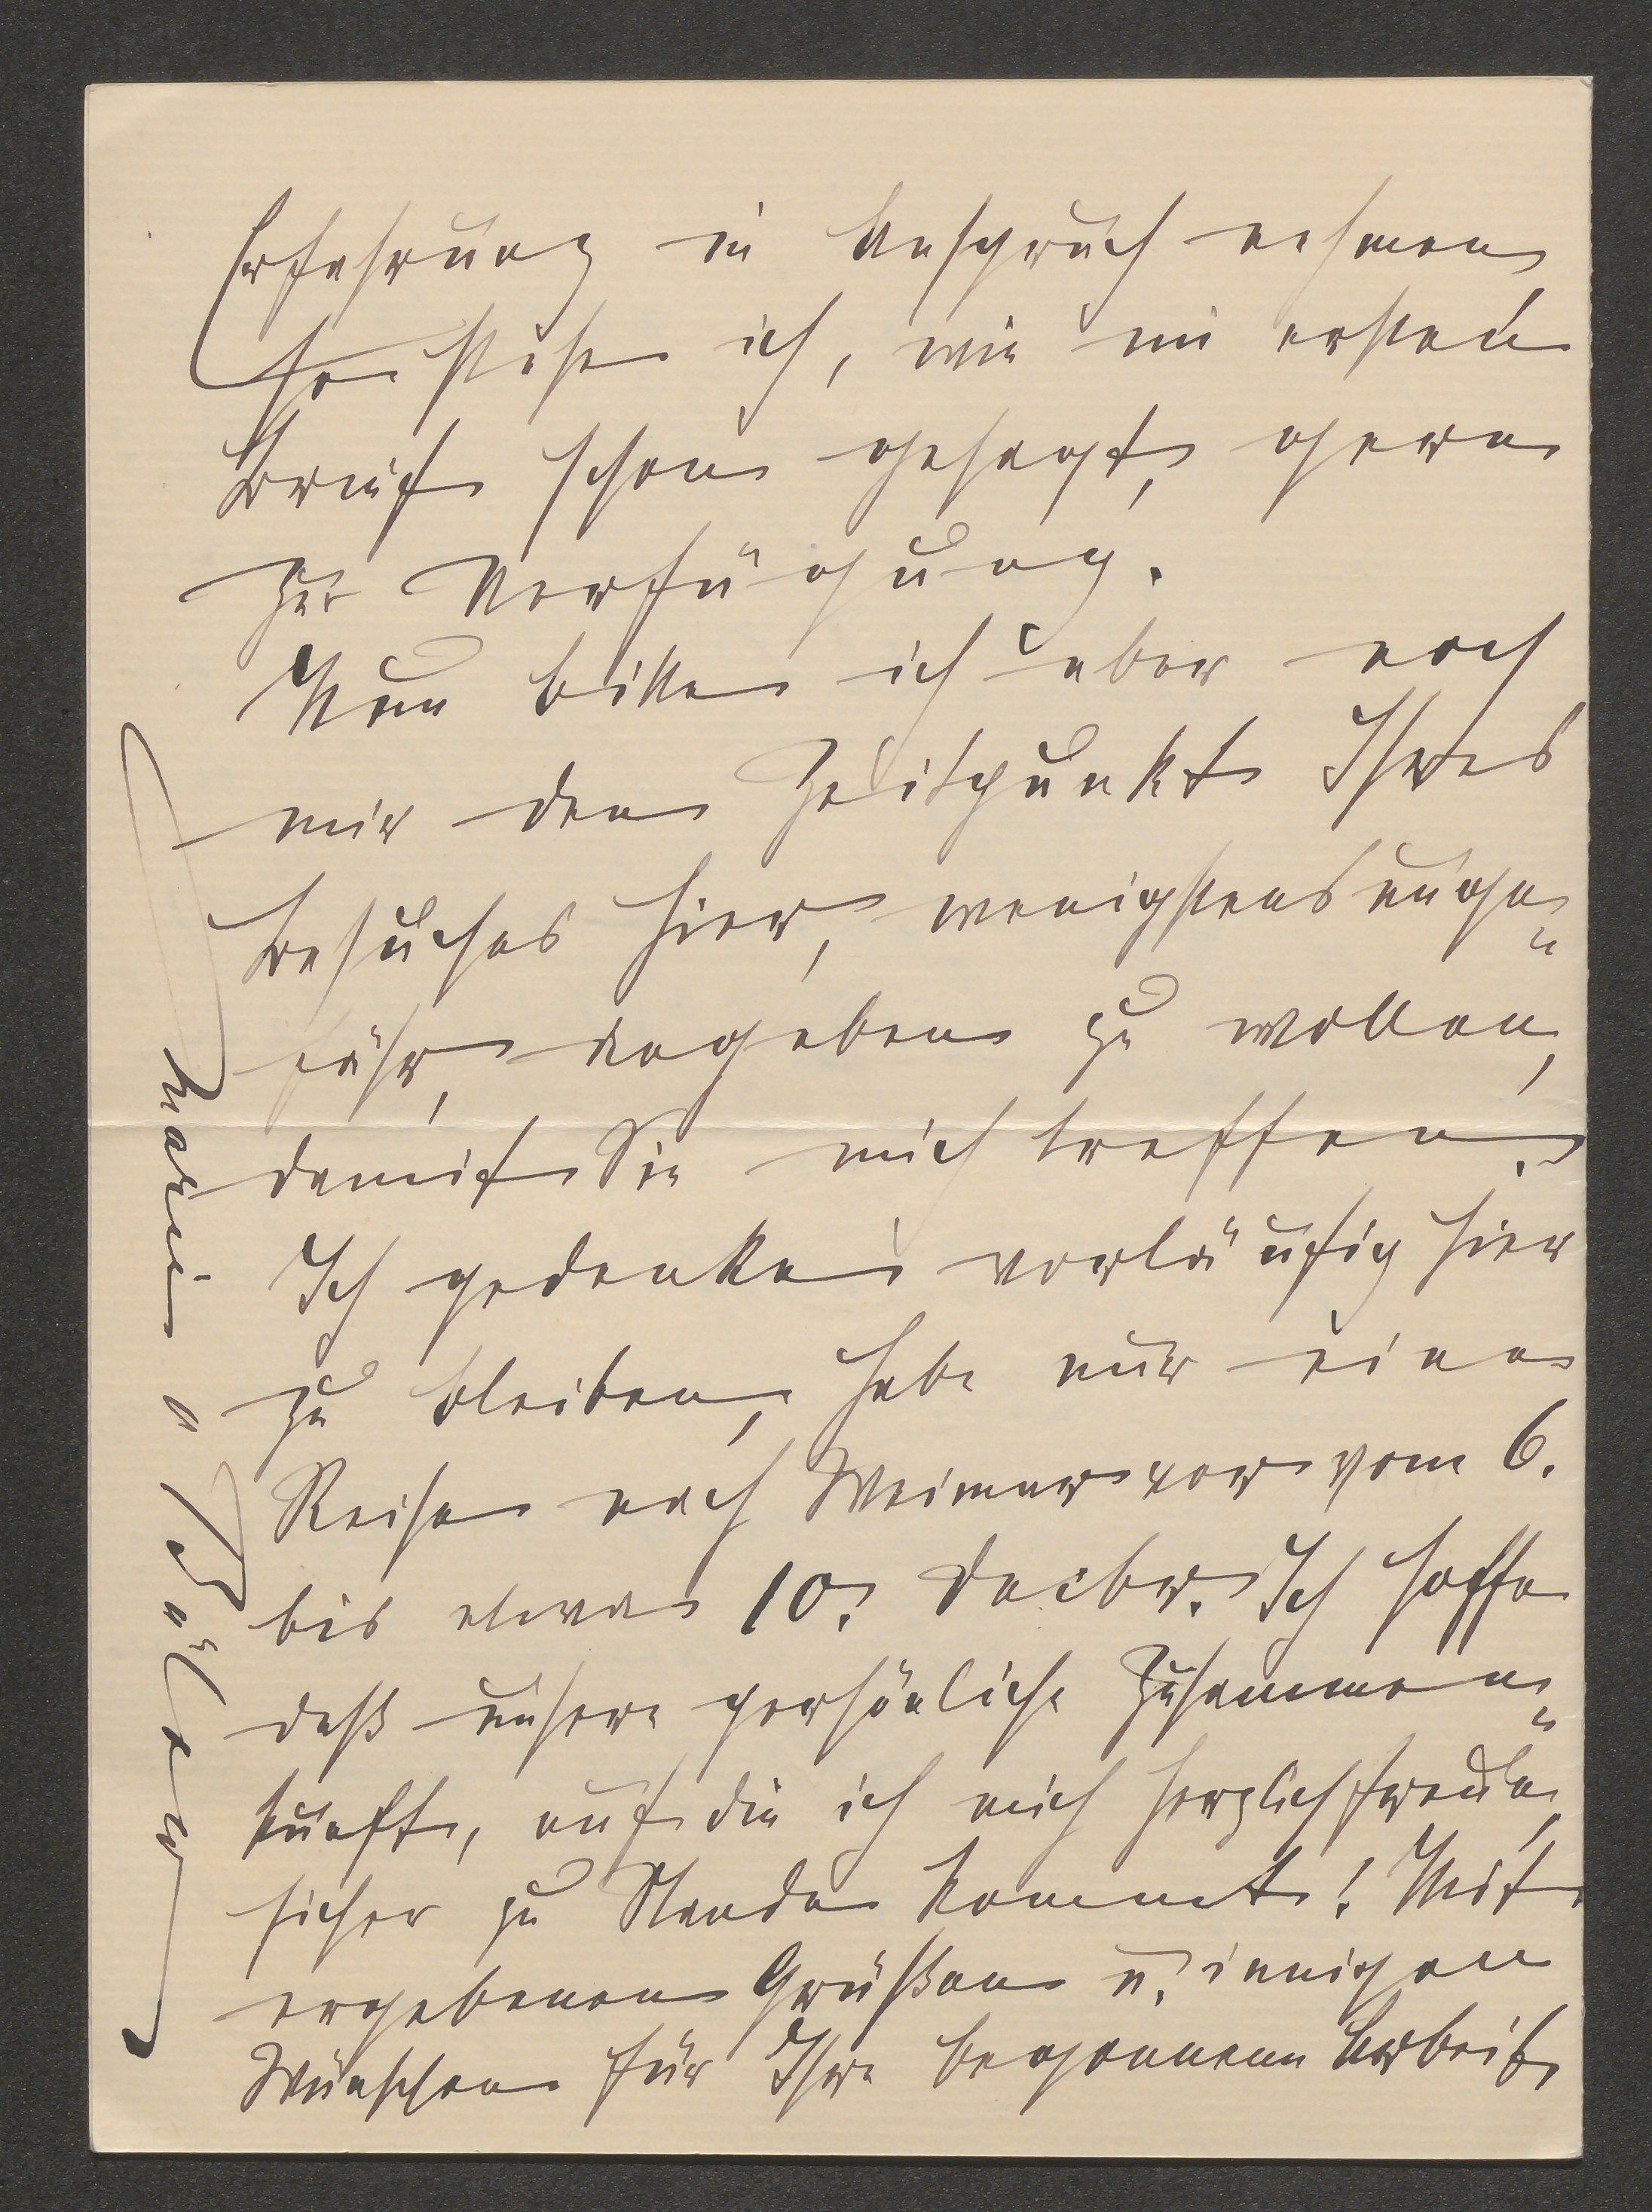 Erfahrung in Anspruch nehmen,
so stehe ich, wie im ersten
Brief schon gesagt, gern
zur Verfügung.
Nun bitte ich aber noch
mir den Zeitpunkt Ihres
Besuches hier, wenigstens unge-
fähr, angeben zu wollen,
damit Sie mich treffen.
Ich gedenke vorläufig hier
zu bleiben, habe nur eine
Reise nach Weimar vor vom 6.
bis etwa 10. Decbr. Ich hoffe
daß unsere persönliche Zusammen-
kunft, auf die ich mich herzlich freue,
sicher zu Stande kommt! Mit
ergebenen Grüßen u. innigen
Wünschen für Ihre begonnene Arbeit
Marie v. Bülow